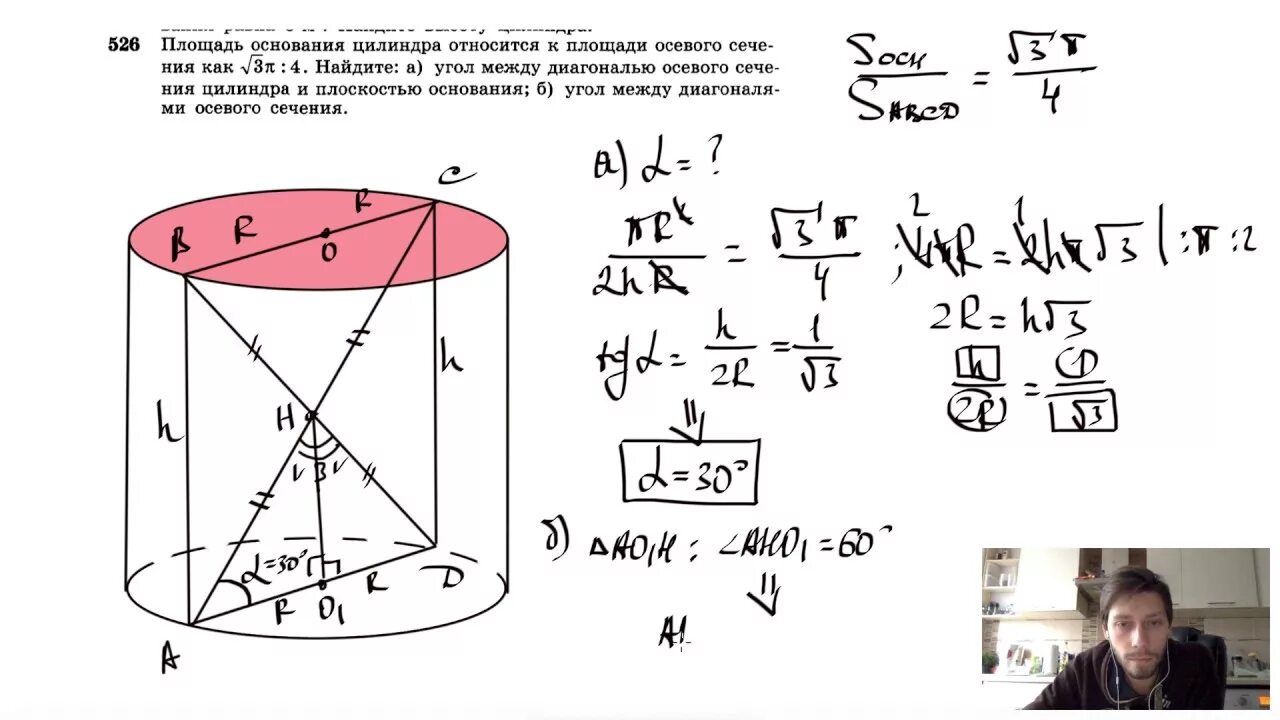 526 Площадь основания цилиндра относится к площади осевого сече-
ния как √3π : 4. Найдите: а) угол между диагональю осевого сече-
ния цилиндра и плоскостью основания; б) угол между диагоналя-
ми осевого сечения.
Sосн / SABCD = √3 π / 4
а) α = ?
πR² / 2hR = √3 π / 4
4πR = 2hπ√3 | : π : 2
2R = h√3
tg α = h / 2R = 1 / √3
h / 2R = 1 / √3
α = 30°
б) △AO₁H : ∠AHO₁ = 60°
C
R
B R
O
h
h
H
β
α = 30°
R
D
R O₁
A